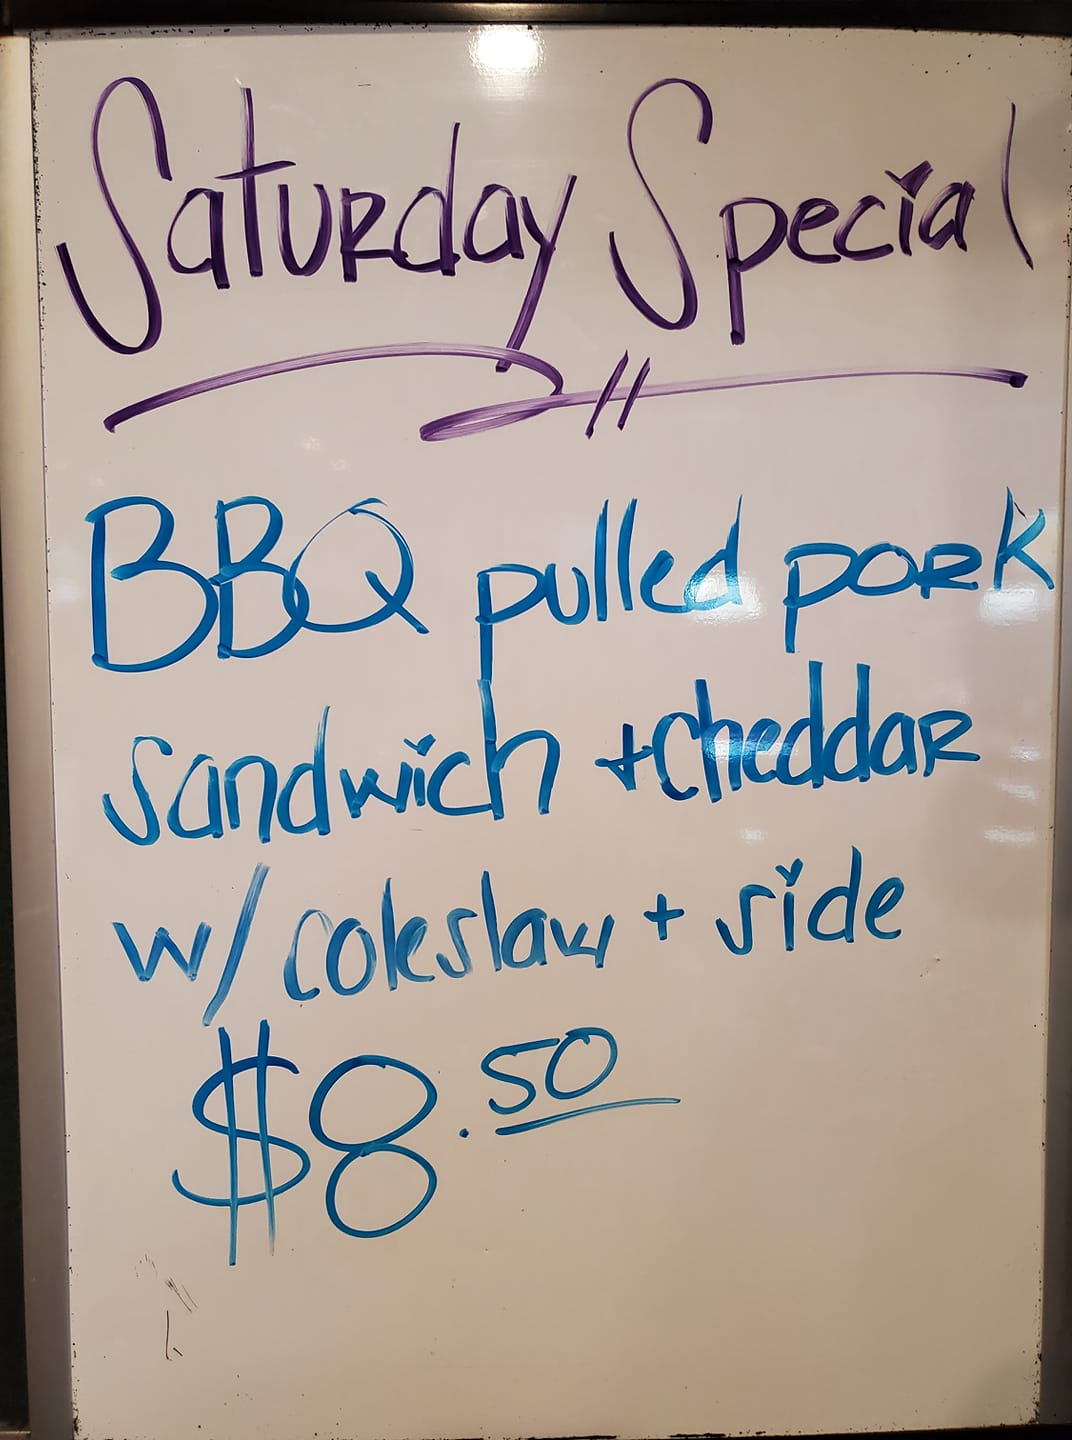 Saturday Special
BBQ pulled pork
sandwich + cheddar
w/ coleslaw + side
$8.50